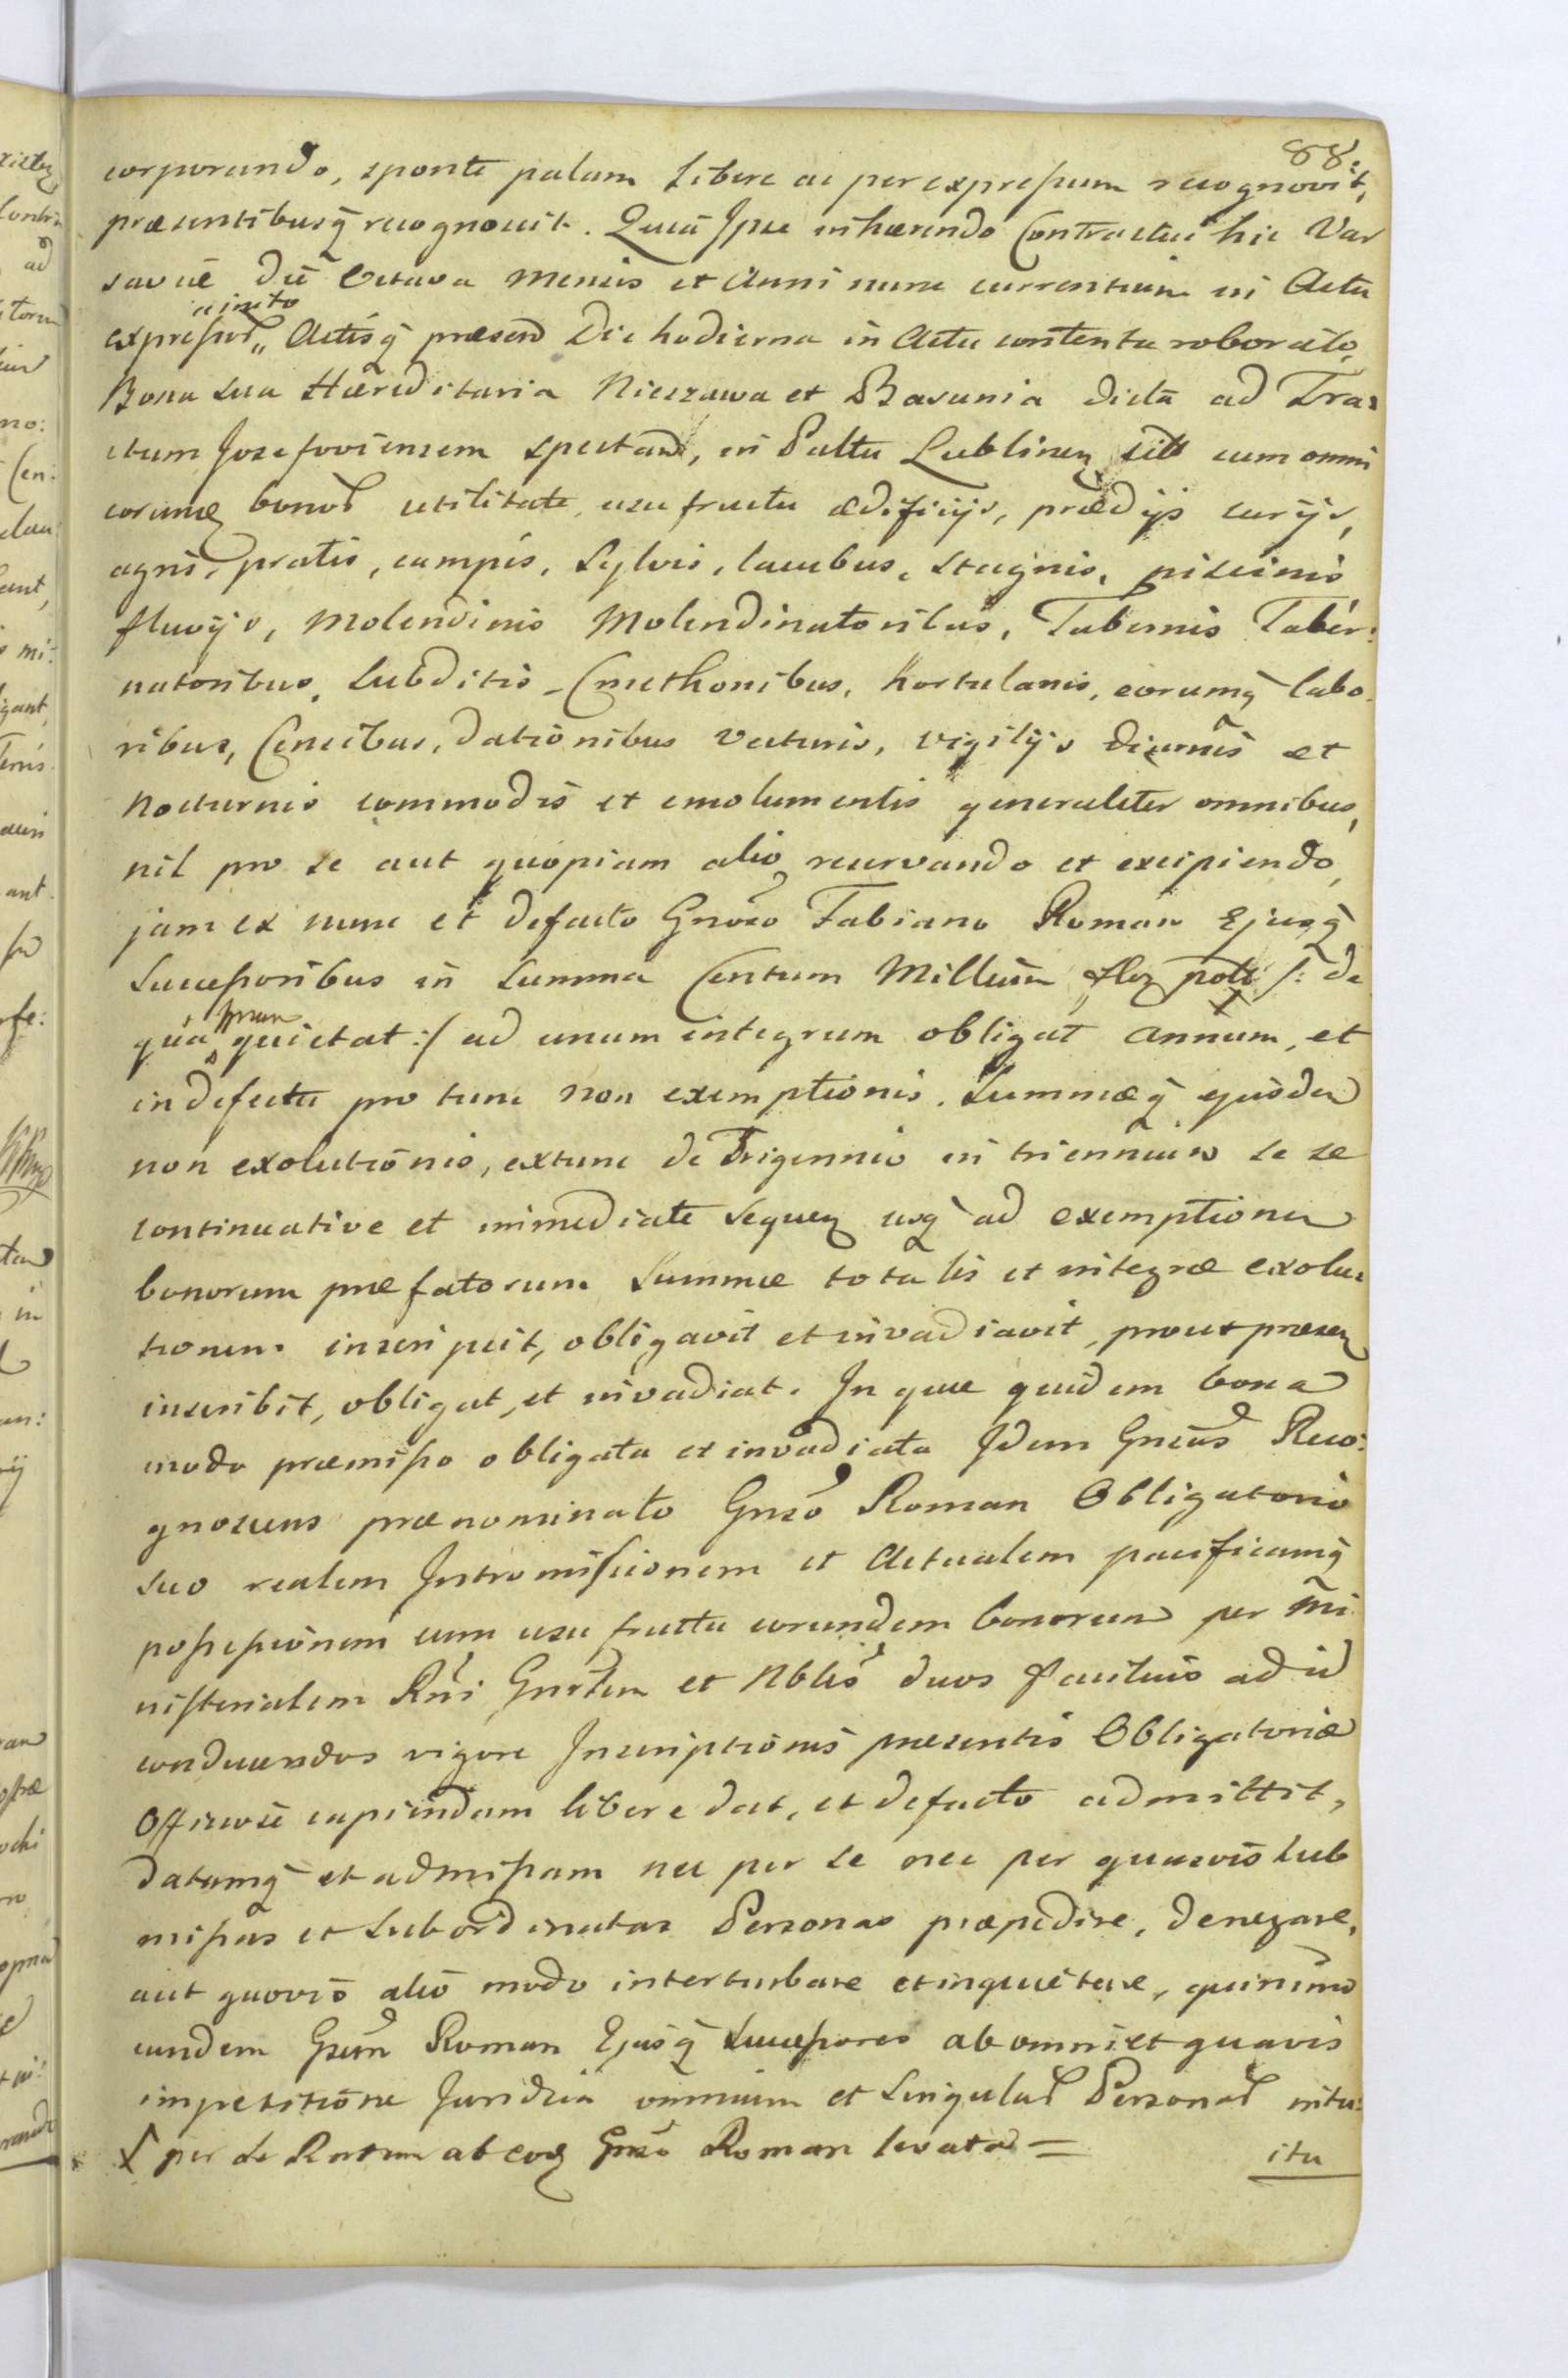 88.
corporando, sponte palam libere ac per expressum recognovit,
præsentibusq̃ recognoscit. Quia Ipse inhærendo Contractui hic Var
saviæ die Octava mensis et Anni nunc currentium in Actu
inito
expressor „ Actisq̃ præsen Die hodierna in Actu contenta roborato,
Bona sua Hæreditaria Nieszawa et Basunia dicta ad Tra:
ctum Josefoviensem spectan, in Palttu Lublinen sitt cum omni
eorumq bonor utilitate, usufructu ædificijs, prædijs curijs,
agris, pratis, campis, sylvis, lacubus, stagnis, piscinis
fluvijs, Molendinis Molendinatoribus, Tabernis Taber:
natoribus, Subditis Cmethonibus, hortulanis, eorumq̃ labo
ribus, Censibus, dationibus vecturis, vigilijs diurnis et
Nocturnis commodis et emolumentis generaliter omnibus,
nil pro se aut quopiam alio reservando et excipiendo,
jam ex nunc et defacto Gnoso Fabiano Roman Ejusq̃
Successoribus in Summa Centum Millium flor poll /: de
qua quietat :/ ad unum integrum obligat annum, et
in defectu pro tunc non exemptionis. Summæq̃ ejusdem
non exolutionis, extunc de Trigennio in triennium se se
continuative et immediate sequen usq̃ ad exemptionem
bonorum præfatorum Summæ totalis et integræ exolu:
tionem inscripsit, obligavit et invadiavit, prout præsen
inscribit, obligat, et invadiat. In quæ quidem bona
modo præmisso obligata et invadiata Idem Gnsus Reco:
gnoscens prænominato Gnso Roman Obligatorio
suo realem Intromissionem et Actualem pacificamq̃
possessionem cum usufructu eorundem bonorum per Mi
nisterialem Rni Gnrlem et Nbles duos famulos ad id
conducendos vigore Inscriptionis præsentis Obligatoriæ
Officiose capiendam libere dat, et defacto admittit,
datamq̃ et admissam nec per se nec per quasvis sub
missas et subordinatas Personas præpedire, denegare,
aut quovis alio modo interturbare et inquietare, quinimo
eundem Gsum Roman Ejusq̃ Successores ab omni et quavis
impetitione Juridica omnium et Singular Personar intu:
X per se Rectem ab eoq Gnso Roman levata =
itu